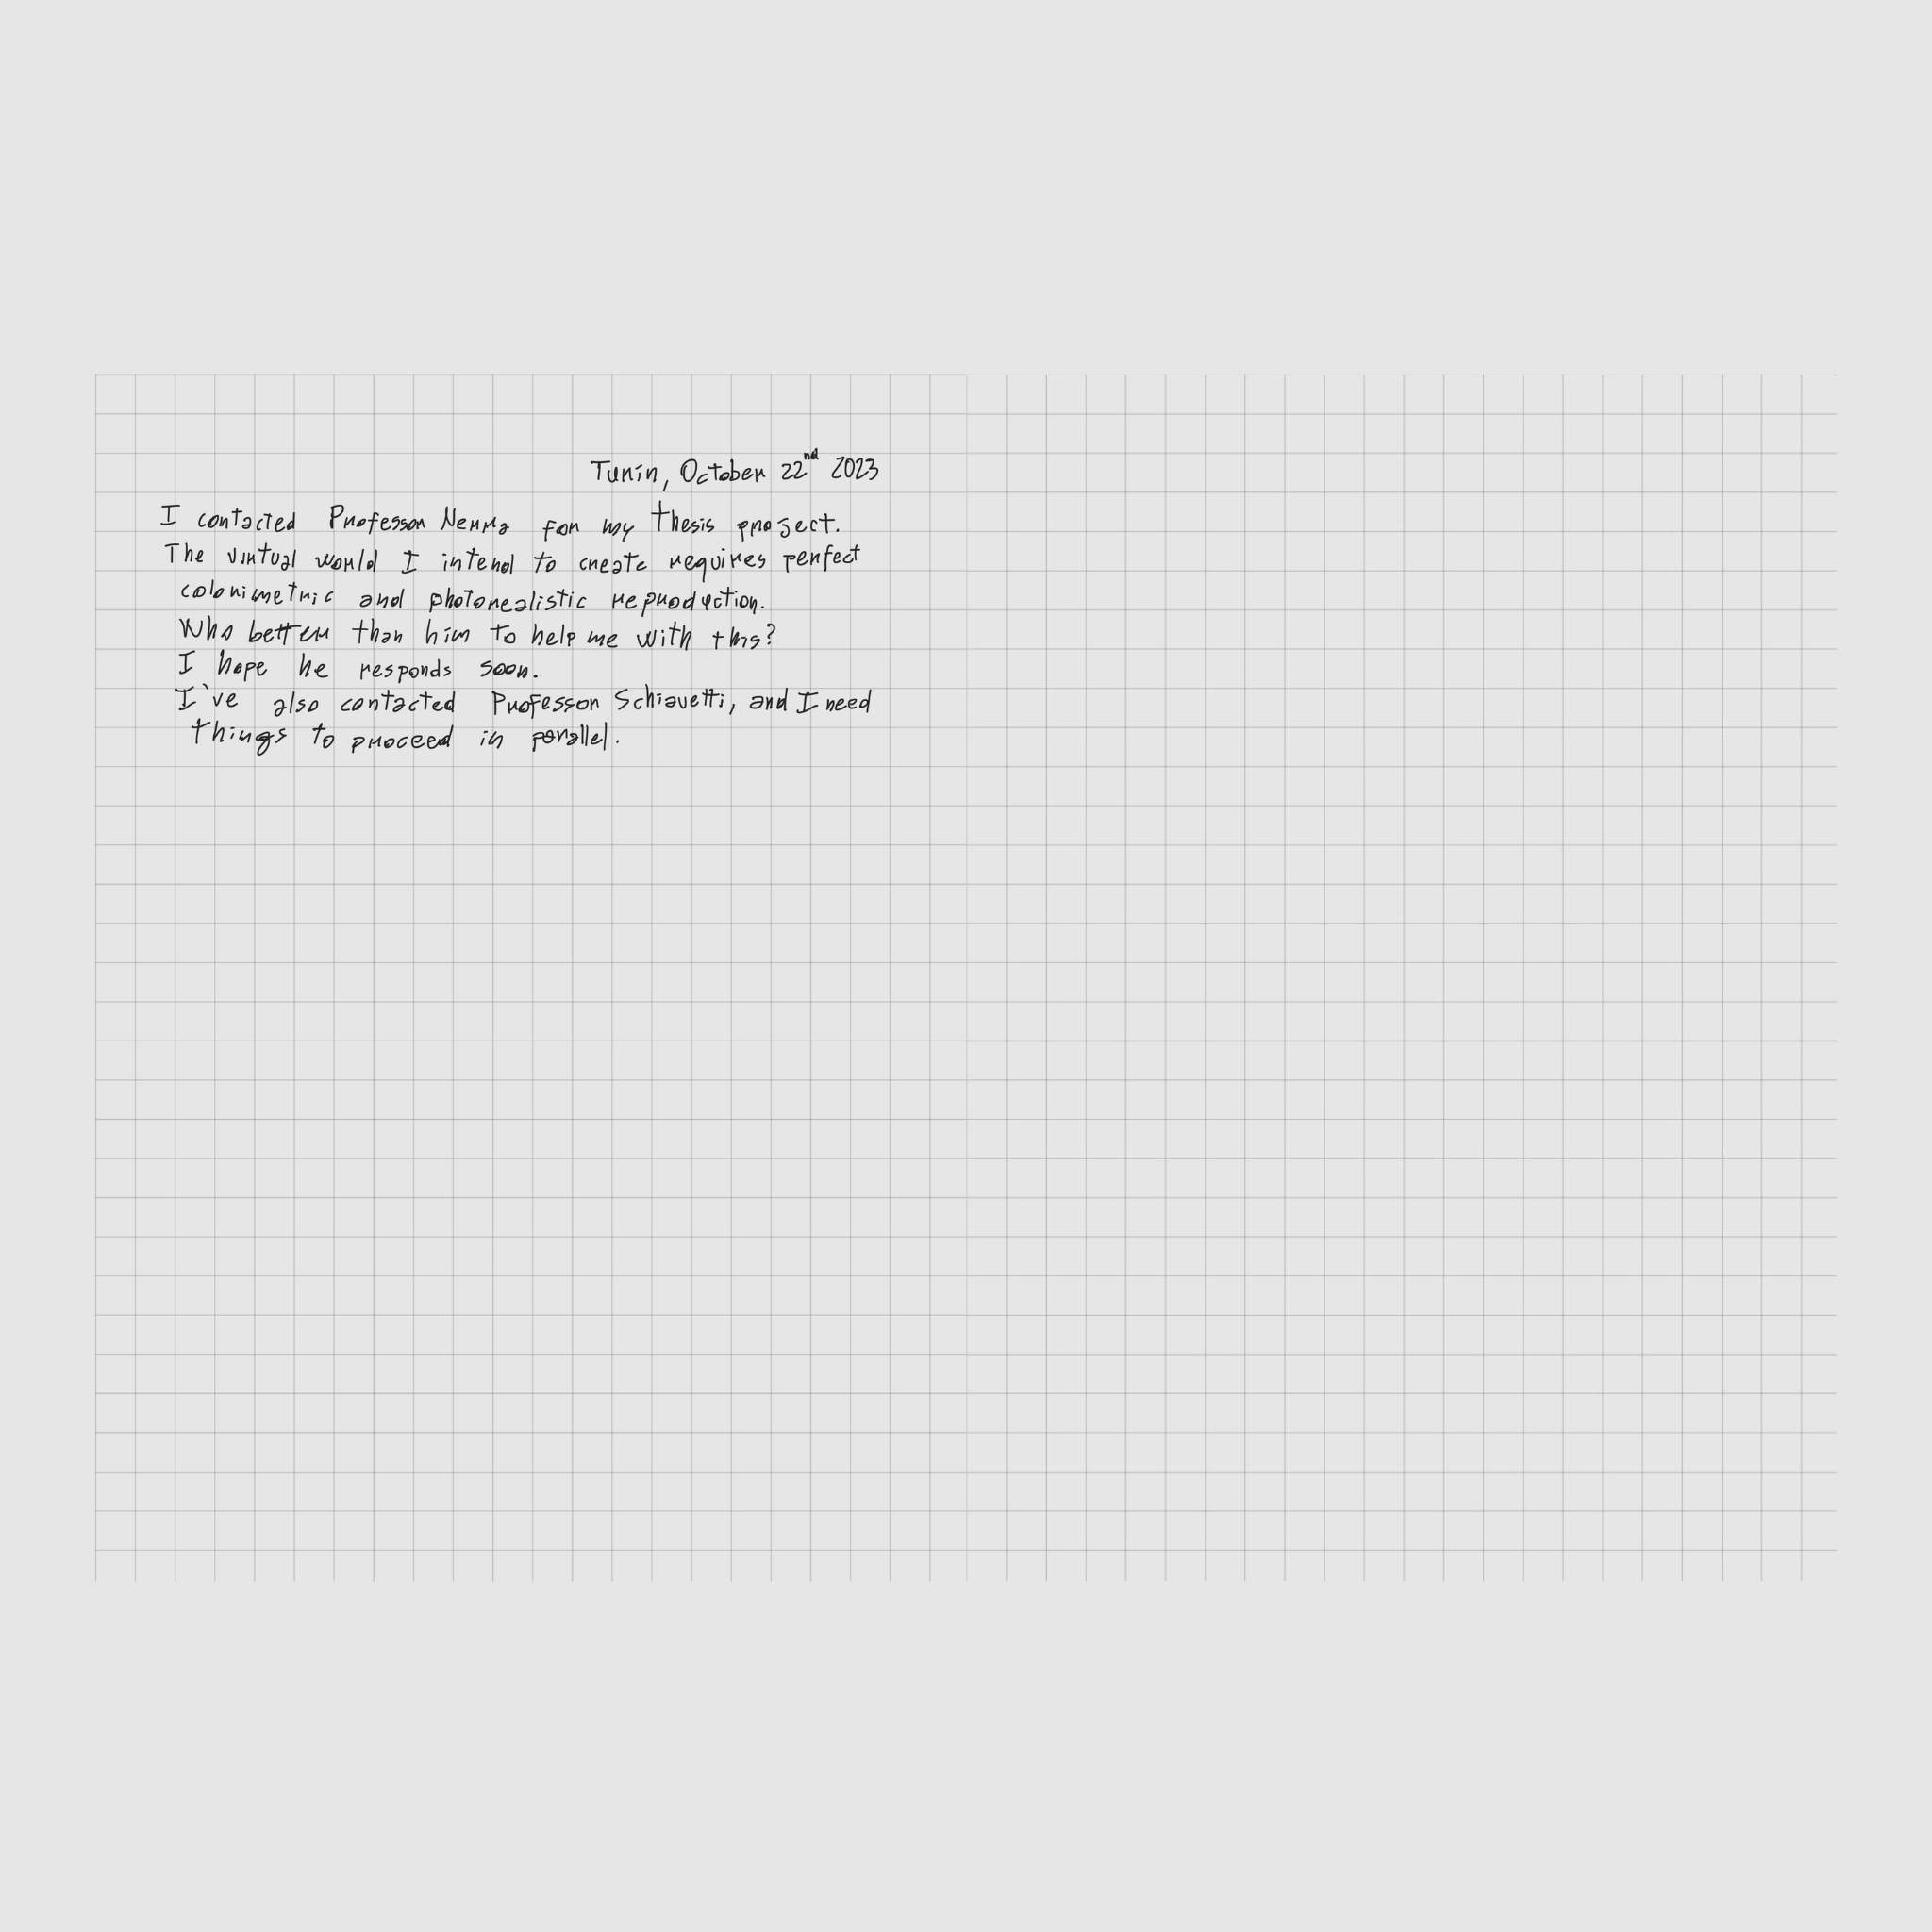 Turin, October 22nd 2023
I contacted Professor Nerra for my thesis project.
The virtual world I intend to create requires perfect
colorimetric and photorealistic reproduction.
Who better than him to help me with this?
I hope he responds soon.
I've also contacted Professor Schiavetti, and I need
things to proceed in parallel.